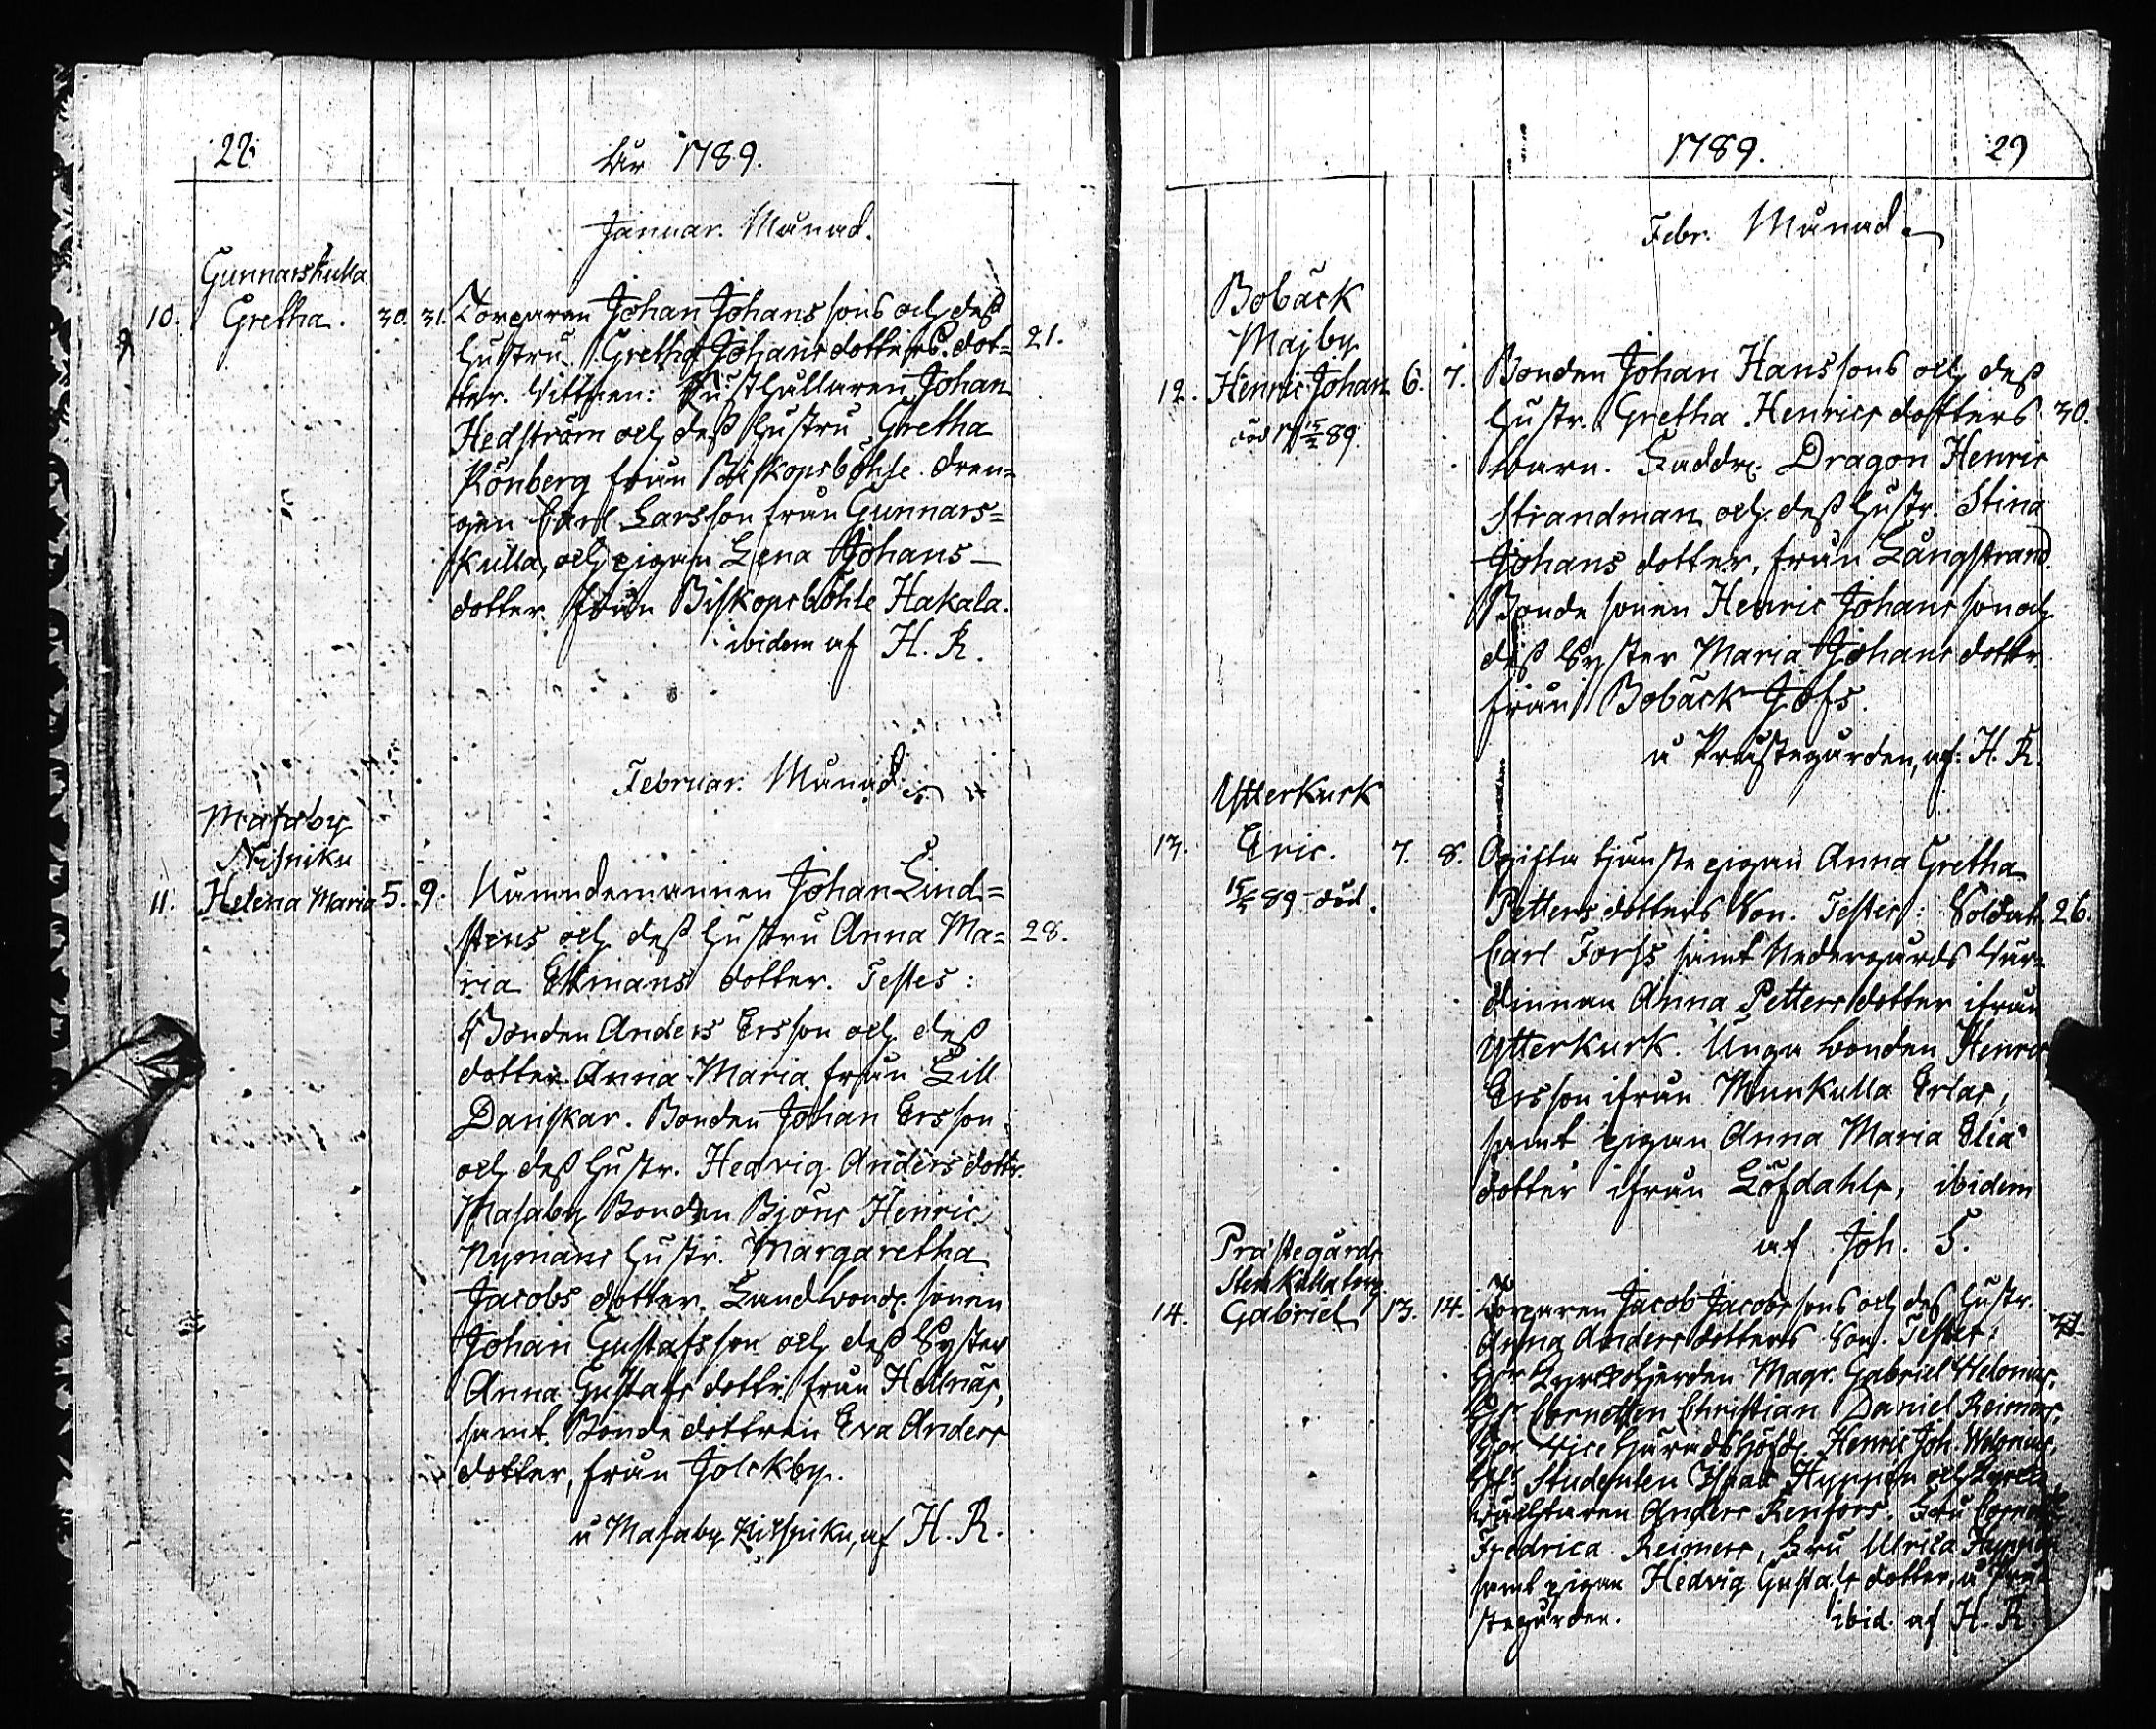 28.
År 1789.
Januar. Månad.
Gunnarskulla
10. Gretha. 30. 31. Torparen Johan Johanssons och dess
hustru Gretha Johansdotters dot= 21.
ter. Vittnen: Rusthållaren Johan
Hedström och dess hustru Gretha
Rönberg från Biskopsböhle. dren=
gen Carl Larsson från Gunnars=
kulla, och pigan Lena Johans
dotter från Biskopsböhle Hakala.
ibidem af H. R.
Februar. Månad.
Masaby
Nisniku
11. Helena Maria 5. 9. Nämndemannen Johan Lind=
stens och dess hustru Anna Ma= 28.
ria dotter. Testes:
Bonden Anders Ersson och dess
dotter Anna Maria från Lill
Danskar. Bonden Johan Ersson
och dess hustr. Hedvig Anders dottr.
Masaby Bonden Björns Henric
Nymans hustr. Margaretha
Jacobs dotter. Landbonde sonen
Johan Gustafsson och dess Syster
Anna Gustafs dottr. från Hellnäs,
samt Bonde dottren Eva Anders
dotter, från Jolckby.
å Masaby Nissniku, af H. R.
1789. 29
Febr. Månad.
Bobäck
Majby
12. Henric Johan 6. 7. Bonden Johan Hanssons och dess
död 15/2 89. hustr. Gretha Henrics dotters 30.
barn. Faddr. Dragon Henric
Strandman och dess hustr. Stina
Johans dotter, från Långstrand.
Bonde sonen Henric Johansson och
dess Syster Maria Johans dottr.
från Bobäck Jofs.
å Prästegården, af H. R.
Ytterkurk
13. Eric. 7. 8. Ogifta tjänste pigan Anna Gretha
89 död. Petters dotters Son. Testes: Soldat. 26.
Carl Forss samt Nedergårds Vär=
dinnan Anna Petters dotter ifrån
Ytterkurk. Unga bonden Henric
Ersson ifrån Munkulla Erlas,
samt pigan Anna Maria Elia
dotter ifrån Löfdahls, ibidem
af Joh. S.
Prästegårds
Stenkulla torp
14. Gabriel 13. 14. Torparen Jacob Jacobssons och dess hustr.
Anna Anders dotters Son. Testes:
Herr Kyrckoherden Magr. Gabriel Helonius,
Herr Cornetten Christian Daniel Reimers,
Herr Vice Häradshöfd. Henric Joh.
Herr Studenten Isaac Hyppen och Kyrcko
wächtaren Anders Renfors. Fru
Fredrica Reimers, Fru Ulrica Hyppen
samt pigan Hedvig Gustafs dotter, å Prä
stegården. ibid. af H. R.